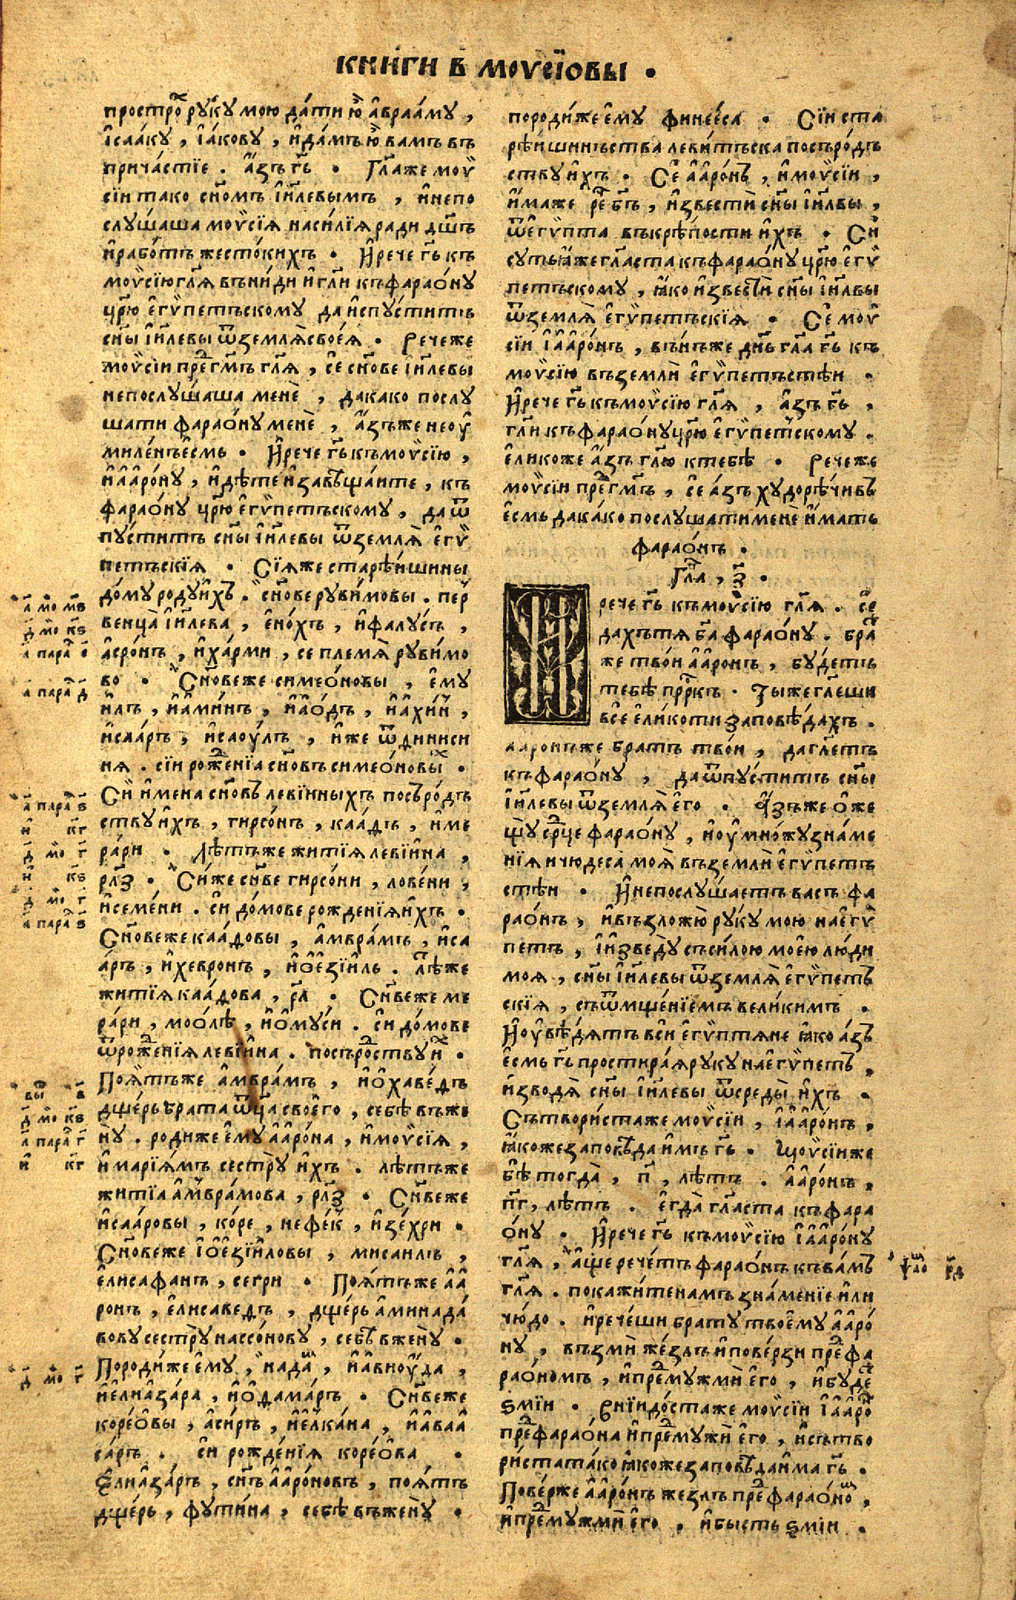 книги в҃ моѵсїовы .
простро̀ руку мою да́ти ю̀ авраа́му ,
ісаа́ку , іа́кову , и҆да́мъ ю̀ вамъ въ
прича́стїе . а҆́зъ гь҃ . Гл҃аже моѵ
сїи тако сн҃омъ і҆и҃левымъ , и҆непо
слу́шаша моѵсїя наси́лїя ради дш҃ъ
и҆работъ жесто́кихъ . И҆рече гь҃ къ
моѵсїю гл҃я въни́ди и҆гл҃и къфарао́ну
цр҃ю е҆гѵ́петьскому да и҆спу́ститъ
сн҃ы і҆и҃левы ѿземля̀ своея̀ . Речеже
моѵсїи пре́гм҃ъ гл҃я , се сн҃ове і҆и҃левы
непослу́шаша менѐ , дакако послу
шати фарао́ну менѐ , а҆́зъже неоу҆
миле́нъ е҆смь . И҆рече гь҃ къмоѵсїю ,
и҆аа҆ро́ну , и҆дѣ́те и҆завѣща́ите , къ
фарао́ну цр҃ю е҆гѵ́петьскому , да ѿ
пу́стить сн҃ы і҆и҃левы ѿземля̀ е҆гѵ́
петьскїя . Сїя́же старѣ́ишины
до́му роду и҆́хъ . сн҃ове руви́мовы . пер
венца і҆и҃лева , е҆но́хъ , и҆фалу́съ ,
а҆сро́нъ , и҆ха́рми , се племя̀ руви́мо
во . Сн҃овеже симео́новы , е҆му
и҆лъ , и҆ами́нъ , и҆ао́дъ , и҆ахи́н ,
и҆саа́ръ , и҆саоу́лъ , и҆же ѿ динниси
ня . сїи роже́нїа сн҃овъ симео́новы .
Си́ и҆мена сн҃овъ леви́иныхъ посъро́дъ
ству и҆хъ , гирсо́нъ , каадъ , и҆ме
ра́ри . Лѣтъже житїя леви́ина ,
рл҃з . Си́же сн҃ве гирсо́ни , лове́ни ,
и҆семе́ни . си до́мове рожденїя и҆хъ .
Сн҃овеже каа́довы , а҆мвра́мъ , и҆са
а́ръ , и҆хевронъ , и҆о҆езїиль . Лѣже
житїя каа́дова , рл҃ . Сн҃веже ме
ра́ри , моо́лѣ , и҆о҆му́си . си до́мове
ѿроже́нїя леви́ина . посъродству и҆ .
Поя́тъже а҆мвра́мъ , и҆о҆хаве́дъ
дще́рь брата ѿц҃а своего̀ , себѣ̀ въже
ну̀ . родиже е҆му̀ аа҆ро́на , и҆моѵсїя ,
и҆ марїя́мъ сестру̀ и҆́хъ . лѣтъже
житїа а҆мвра́мова , рл҃з . Сн҃веже
и҆саа́ровы , ко́ре , нефе́к , и҆зе́хри .
Сн҃овеже і҆о҆езїи́ловы , мисаилъ ,
е҆лисафа́нъ , сегри . Поя́тъже аа҆
ронъ , е҆лисаве́дъ , дще́рь а҆мина́да
вову сестру̀ нассо́нову , себѣ̀ вже́ну̀ .
Породи́же е҆му , нада́ , и҆авиоу́да ,
и҆елиа҆за́ра , и҆о҆дама́ръ . Сн҃веже
коре́овы , а҆си́ръ , и҆елка́на , и҆аваа
са́ръ . си рожде́нїя коре́ова .
Е҆лиа҆за́ръ , сн҃ъ аа҆ро́новъ , поя́тъ
дще́рь , футїи́на , себѣ̀ въже́ну̀ .
породи́же е҆му финее́са . Сїи ста
рѣ́ишиньства левитъска посъро́дъ
ству и҆́хъ . Се́ аа҆ро́нъ , и҆моѵсїи ,
и҆маже ре бг҃ъ , и҆звестѝ сн҃ы і҆и҃лвы ,
ѿе҆гѵ́пта въкрѣ́пости и҆хъ . Си́
суть ꙗ҆же гл҃аста къфарао́ну цр҃ю е҆гѵ́
петьскому , ꙗ҆ко и҆звестѝ сн҃ы і҆и҃лвы
ѿземля̀ е҆гѵ́петьскїя . Се́ моѵ
сїи і҆аа҆ро́нъ , въньже дн҃ь гл҃а гь҃ къ
моѵсїю въземлѝ е҆гѵ́петьстѣи .
И҆рече гь҃ къмоѵсїю гл҃я , а҆́зъ гь҃ ,
гл҃и къфарао́нуцр҃ю е҆гѵ́петьскому .
е҆ликоже а҆́зъ гл҃ю ктебѣ̀ . Речеже
моѵсїи пре́гм҃ъ , се а҆́зъ худорѣ́чивъ
е҆смь дака́ко послу́шатименѐ и҆́мать
фарао́нъ .
Гл҃а , з҃ .
И рече гь҃ къмоѵсїю гл҃я . се
дахътя бг҃а фарао́ну . бра
же тво́и аа҆ро́нъ , бу́деть
тебѣ̀ пр҃ркъ . Ты́же гл҃еши
всѐ е҆ли́коти заповѣ́дахъ .
ааронъже братъ твои , дагл҃етъ
къфарао́ну , даѿпу́ститъ сн҃ы
і҆и҃левы ѿземля̀ е҆го . А҆зъже о҆же
щу ср҃це фарао́ну , и҆оу҆мно́жу зна́ме
нїя и҆чюдеса моя̀ въземлѝ е҆гѵ́петъ
стѣи . И҆непослу́шаетъ васъ фа
рао́нъ , и҆възложю̀ ру́ку мою нае҆гѵ́
петъ , і҆и҆зведу̀ съси́лою мое́ю лю́ди
моя̀ , сн҃ы і҆и҃левы ѿземля̀ е҆гѵ́петъ
скїя , съѿмще́нїемъ великимъ .
И҆оу҆вѣ́дятъ вси е҆гѵ́птяне ꙗ҆ко а҆́зъ
е҆смь гь҃ простира́я руку нае҆гѵ́петъ ,
и҆зводя̀ сн҃ы і҆и҃левы ѿсреды̀ и҆хъ .
Сътвори́стаже моѵсїи , і҆аа҆ро́нъ ,
ꙗ҆коже заповѣ́да и҆́мъ гь҃ . Моѵсїиже
бѣ̀ тогда̀ , п҃ , лѣтъ . аа҆ро́нъ ,
пг҃ , лѣтъ . е҆гда̀ гл҃аста къфара
о́ну . И҆рече гь҃ къмоѵсїю і҆аа҆ро́ну
гл҃я , а҆ще рече́тъ фарао́нъ къва́мъ
гл҃я . покажи́тенамъ зна́менїе и҆ли
чю́до . и҆рече́ши брату́ твоему аа҆ро́
ну , възми̏ же́злъ и҆пове́рзи пре́фа
рао́номъ , и҆пре́мужмѝ е҆го , и҆бу́де
ѕмїи . Вни́идо́стаже моѵсїи і҆аа҆ро́
пре́фарао́на и҆пре́мужѝ е҆го , и҆сътво
ристатако ꙗ҆коже заповѣ́да и҆ма гь҃ .
Пове́рже аа҆ро́нъ жезлъ пре́фарао́но ,
и҆пре́мужмѝ е҆го , и҆бысть ѕмїи .